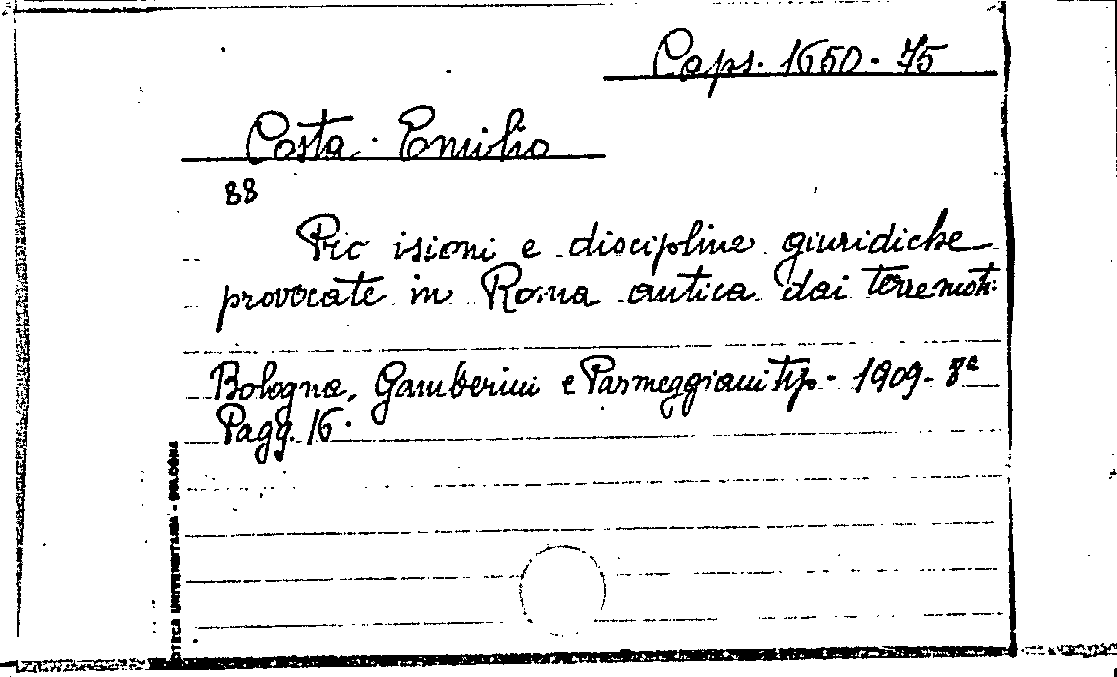 Caps. 1650-75
Costa Emilio
88
Pre isioni e discipline giuridiche
provocate in Roma antica dai terremoti.
Bologna, Gamberini e Parmeggiani tip. - 1909 - 8º
Pagg. 16.
TECA UNIVERSITARIA - BOLOGNA